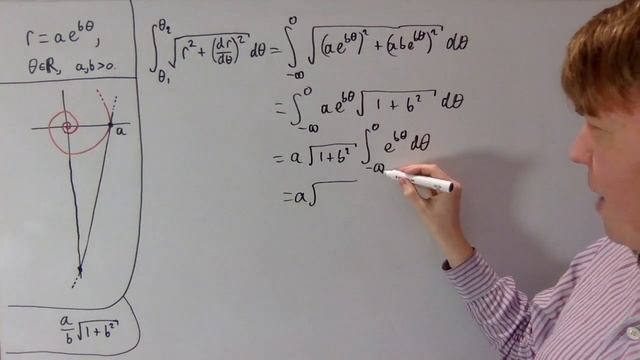 r = ae^{bθ},
θ∈ℝ, a,b>0.
a
a/b √(1+b²)
∫_{θ₁}^{θ₂} √(r² + (dr/dθ)²) dθ = ∫_{-∞}^{0} √((ae^{bθ})² + (abe^{bθ})²) dθ
= ∫_{-∞}^{0} ae^{bθ} √(1 + b²) dθ
= a √(1+b²) ∫_{-∞}^{0} e^{bθ} dθ
= a√